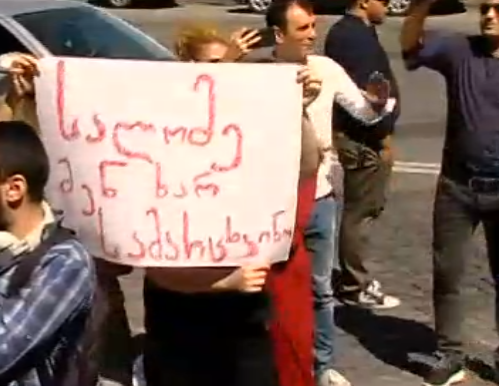 სალომე
შენ ხარ
სამარცხვინო